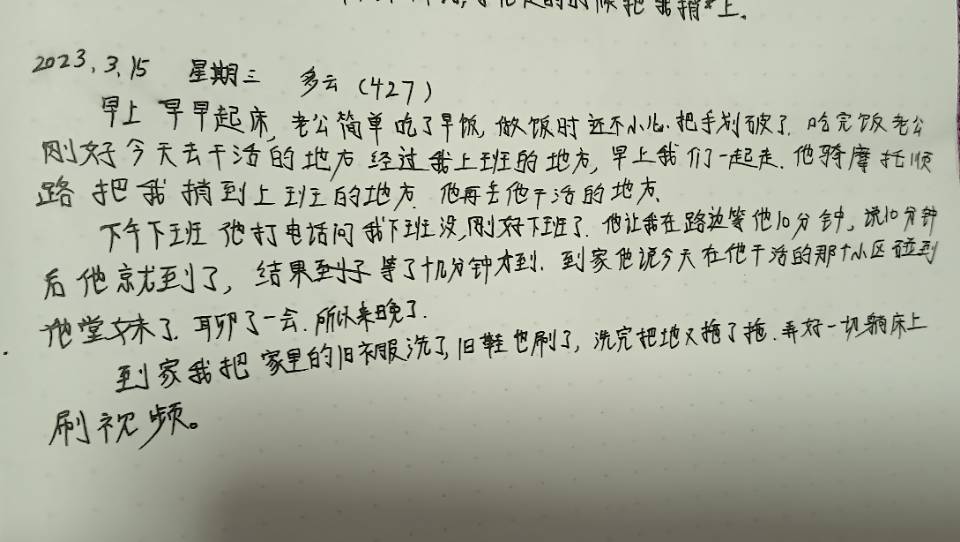 的时候把我捎上。
2023.3.15 星期三 多云(427)
早上早早起床,老公简单吃了早饭,做饭时还不小心把手划破了。吃完饭老公
刚好今天去干活的地方经过我上班的地方,早上我们一起走.他骑摩托顺
路把我捎到上班的地方.他再去他干活的地方.
下午下班他打电话问我下班没,刚好下班了.他让我在路边等他10分钟,说10分钟
后他就到了,结果等了十几分钟才到.到家他说今天在他干活的那个小区碰到
他堂妹了.耳卯了一会.所以来晚了.
到家我把家里的旧衣服洗了,旧鞋也刷了,洗完把地又拖了拖.弄好一切躺床上
刷视频。